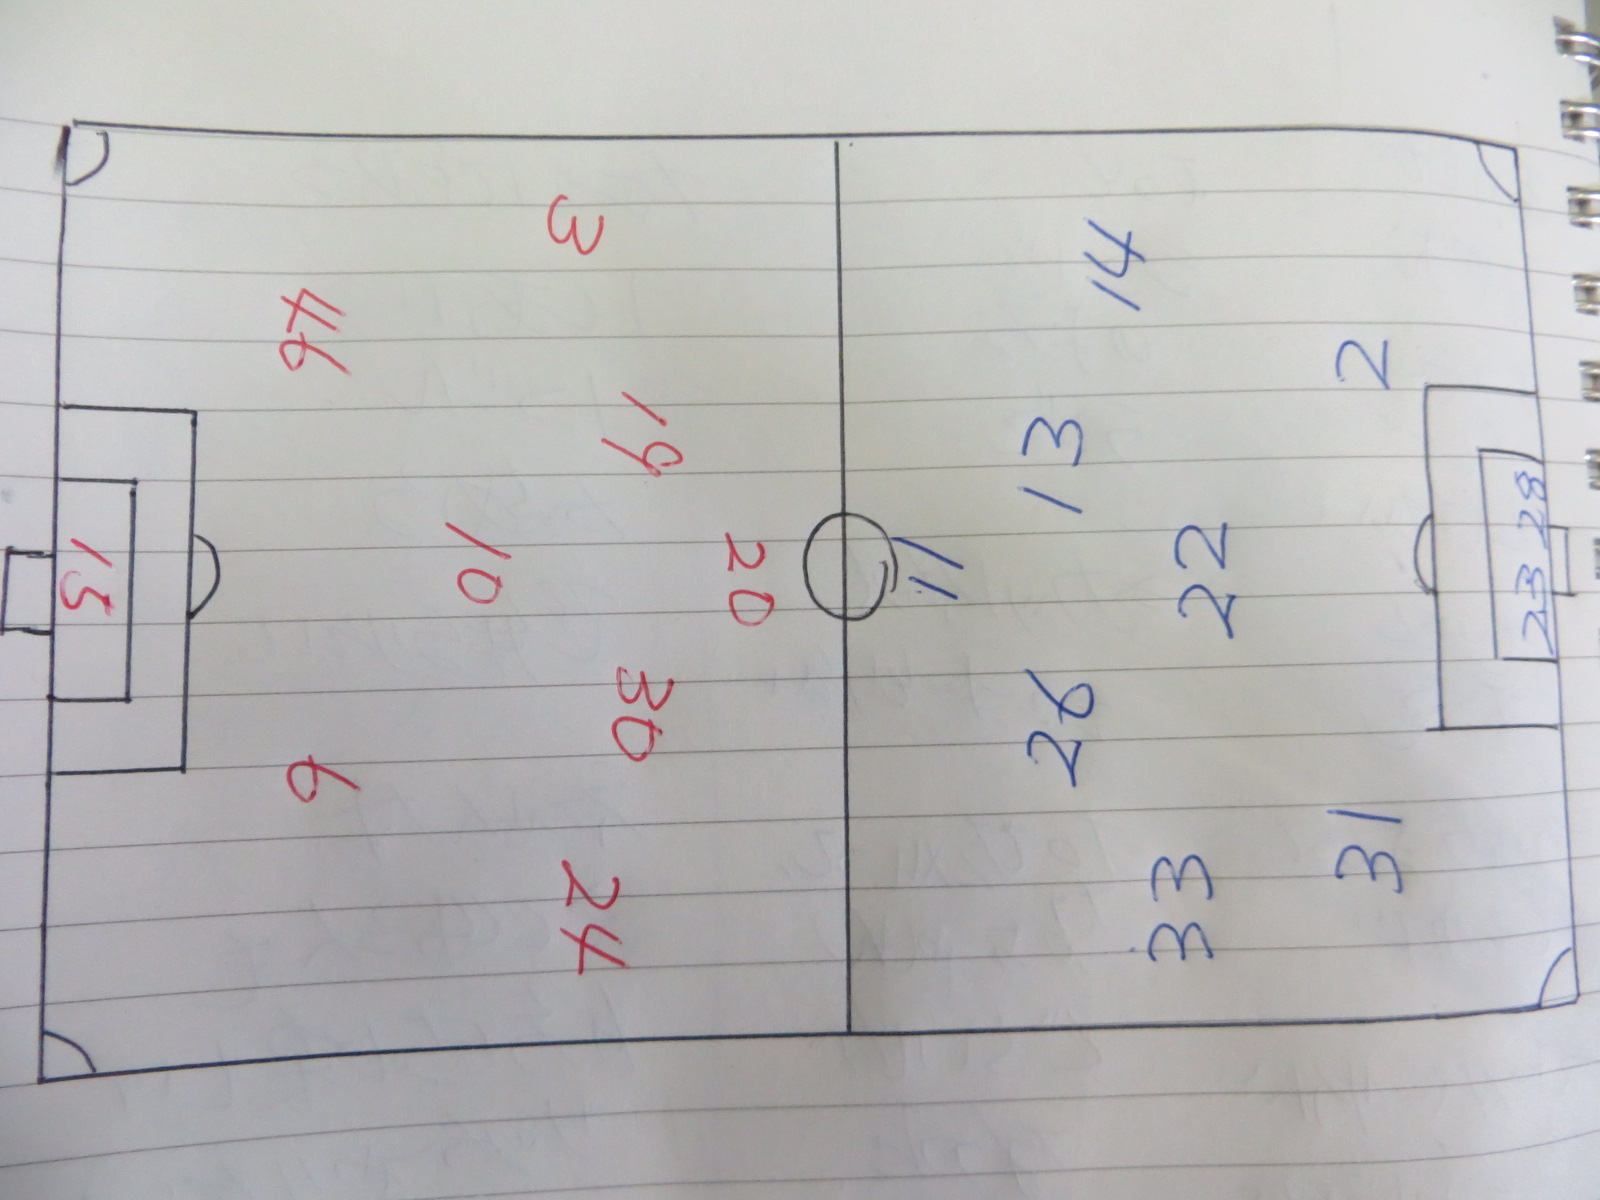 3
46
19
10
20
15
30
6
24
14
2
13
11
22
28
23
26
31
33